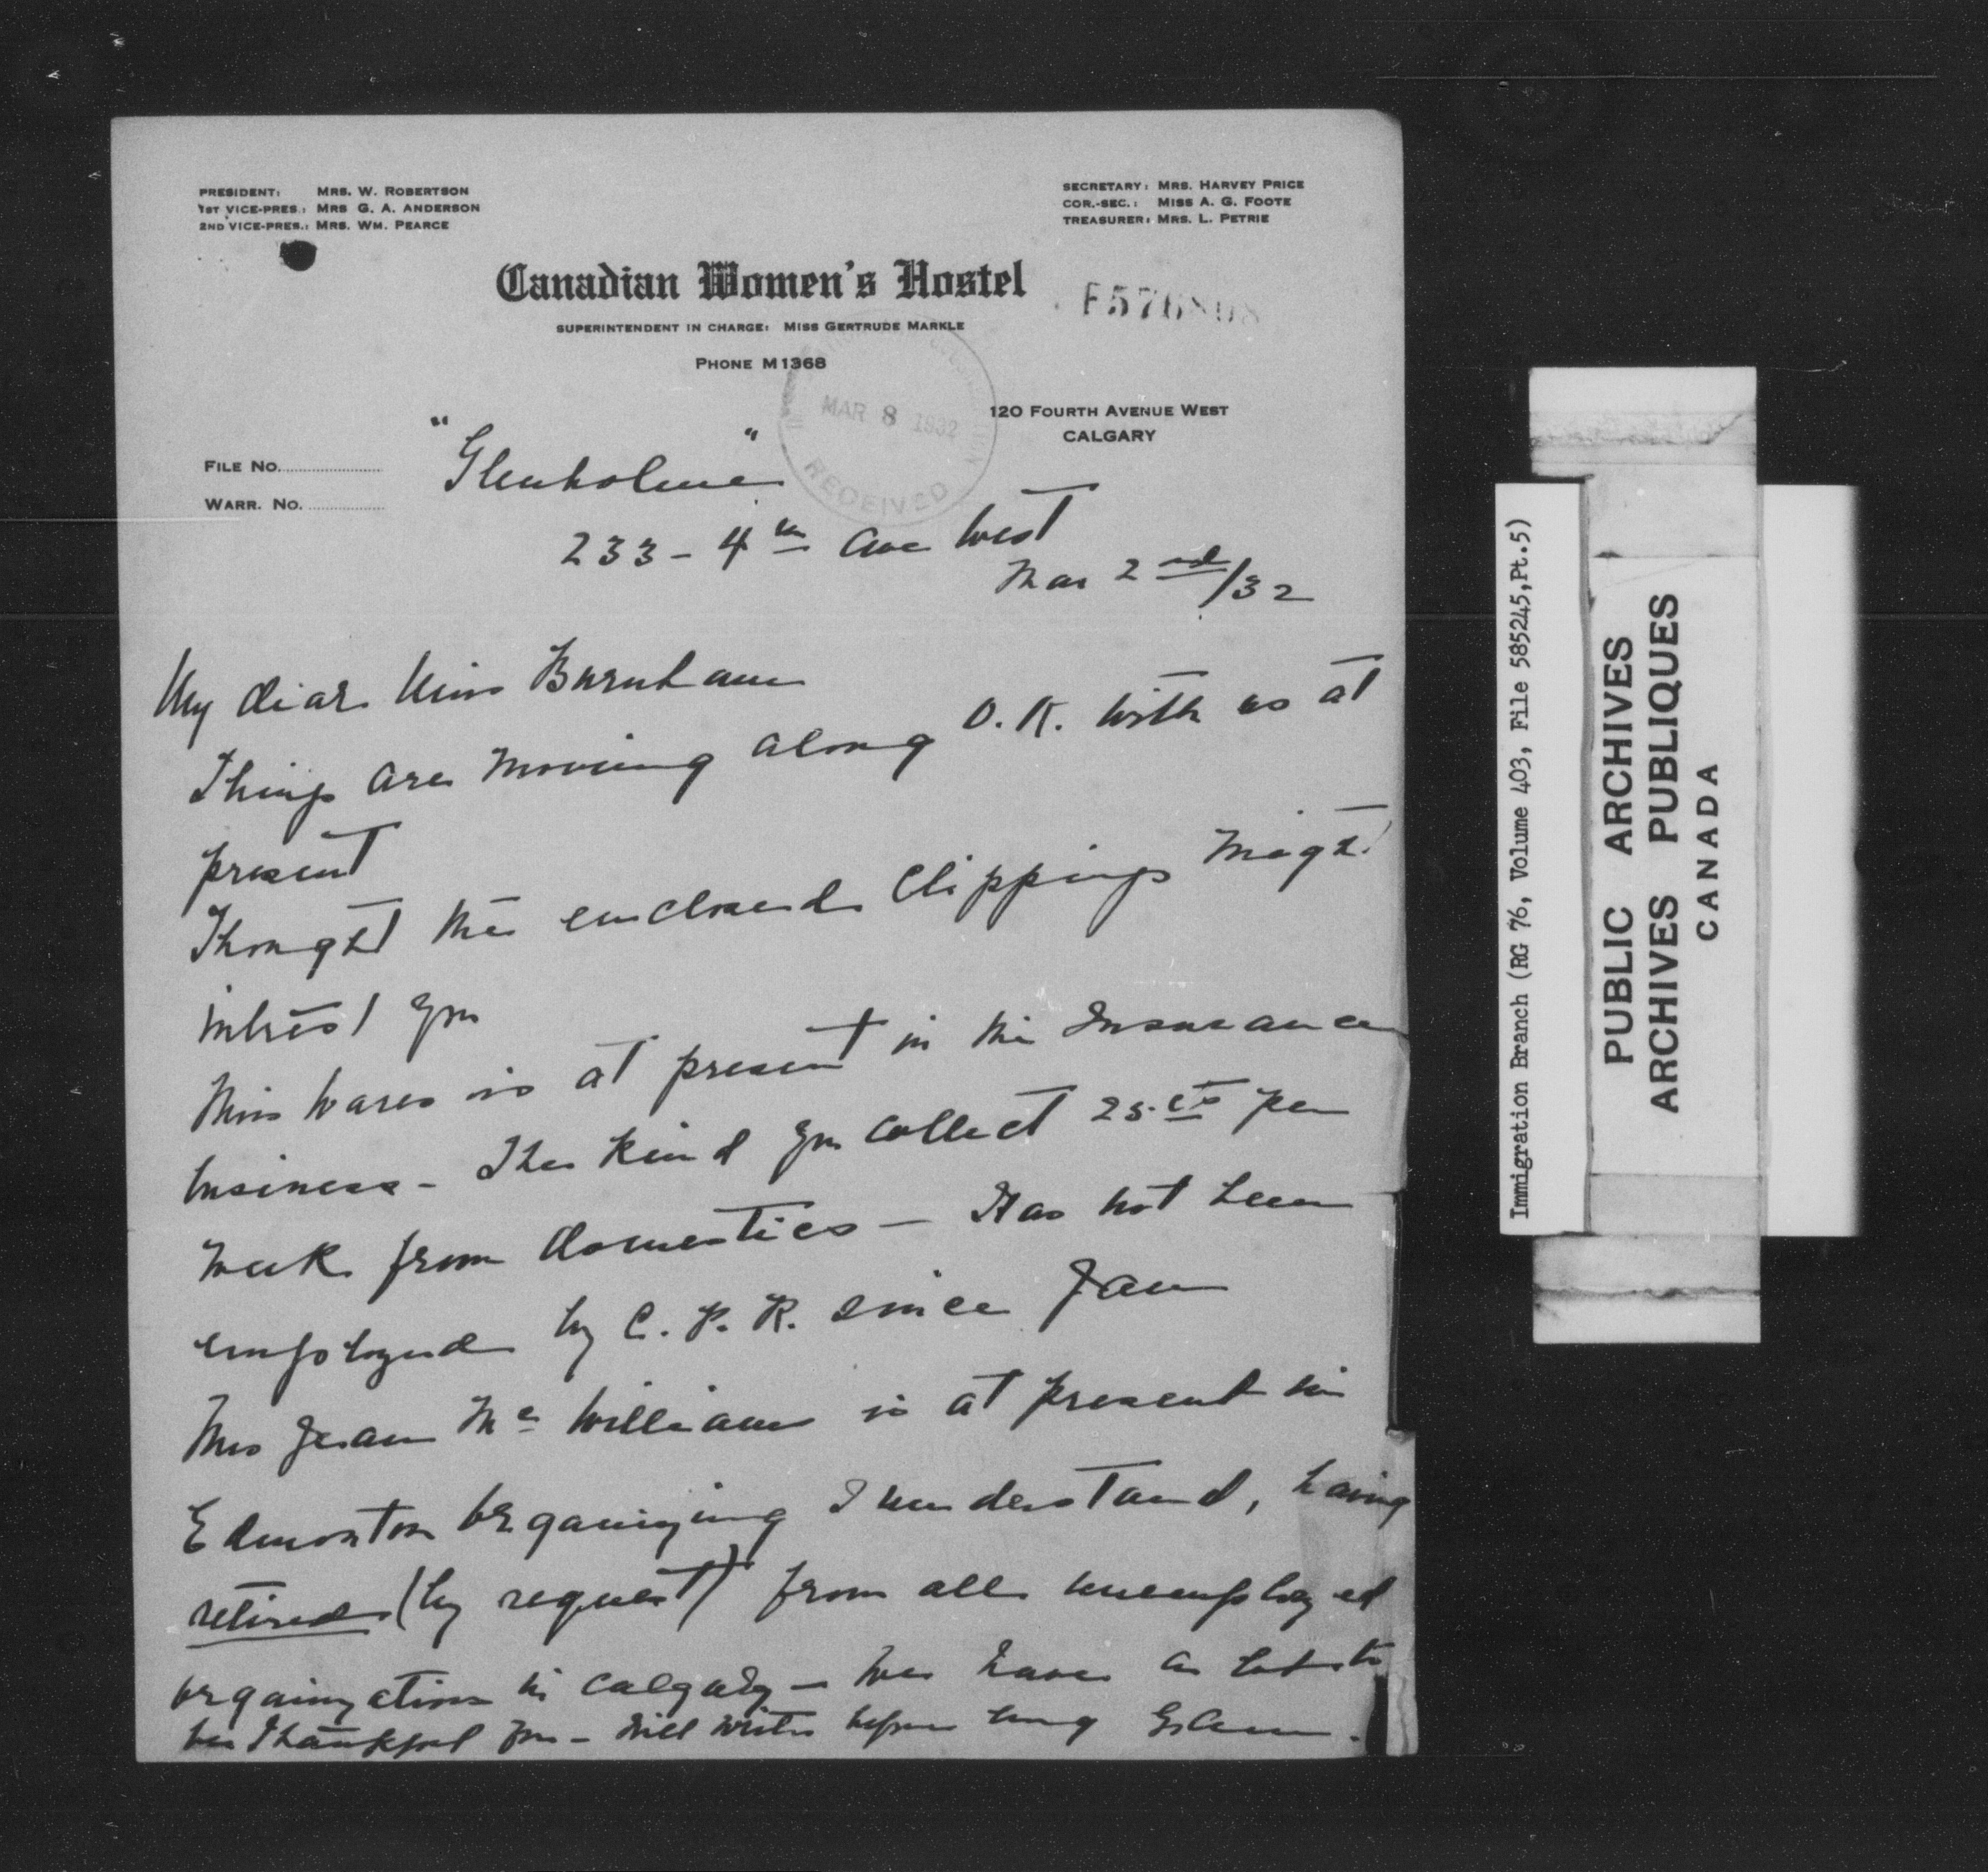 PRESIDENT: MRS. W. ROBERTSON
1ST VICE-PRES.: MRS G. A. ANDERSON
2ND VICE-PRES.: MRS. WM. PEARCE
SECRETARY: MRS. HARVEY PRICE
COR.-SEC.: MISS A. G. FOOTE
TREASURER: MRS. L. PETRIE
Canadian Women's Hostel
F576808
SUPERINTENDENT IN CHARGE: MISS GERTRUDE MARKLE
PHONE M1368
MAR 8 1932
RECEIVED
120 FOURTH AVENUE WEST
CALGARY
FILE NO.
WARR. NO.
"Glenholme"
233 - 4th Ave West
Mar 2nd/32
My dear Miss Burnham
Things are moving along O.K. with us at
present
Thought the enclosed clippings might
interest you
Miss Wares is at present in the Insurance
business - The kind you collect 25.cts per
week from domestics - Has not been
employed by C.P.R. since Jan
Mrs Jean Mc Williams is at present in
Edmonton organizing I understand, having
retired (by request) from all unemployed
organizations in Calgary - We have a lot to
be thankful for - Will write before long
Immigration Branch (RG 76, Volume 403, File 585245,Pt.5)
PUBLIC ARCHIVES
ARCHIVES PUBLIQUES
CANADA